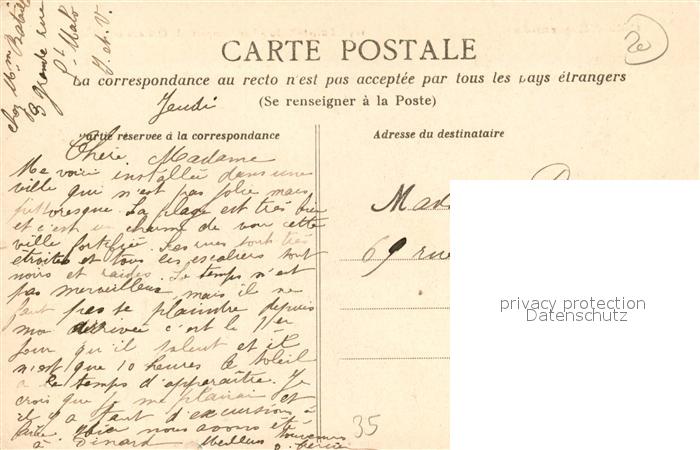 chez Mme
3 grande rue
St-Malo
I. et. V.
20
CARTE POSTALE
La correspondance au recto n'est pas acceptée par tous les pays étrangers
(Se renseigner à la Poste)
Jeudi
Partie réservée à la correspondance
Adresse du destinataire
Chère Madame
Me voici installée dans une
ville qui n'est pas jolie mais
pittoresque. La plage est très bien
et c'est un charme de voir cette
ville fortifiée. Les rues sont très
étroites et tous les escaliers sont
noirs et raides. Le temps n'est
pas merveilleux mais il ne
faut pas se plaindre depuis
mon arrivée c'est le 1er
jour qu'il et il
n'est que 10 heures le soleil
a le temps d'apparaître. Je
crois que je me plairai et
il y a tant d'excursions à
faire. Hier nous avons été
à Dinard Meilleurs
Mad
69 rue
privacy protection
Datenschutz
35